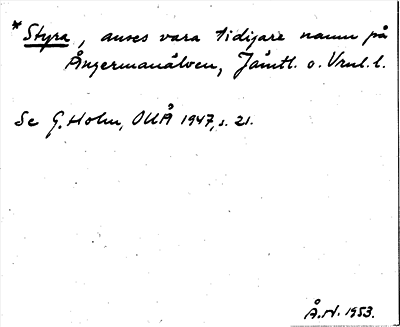 * Styra, anses vara tidigare namn på
Ångermanälven, Jämtl. o. Vrnl. l.
Se G. Holm, OUÅ 1947, s. 21.
Å.N. 1953.